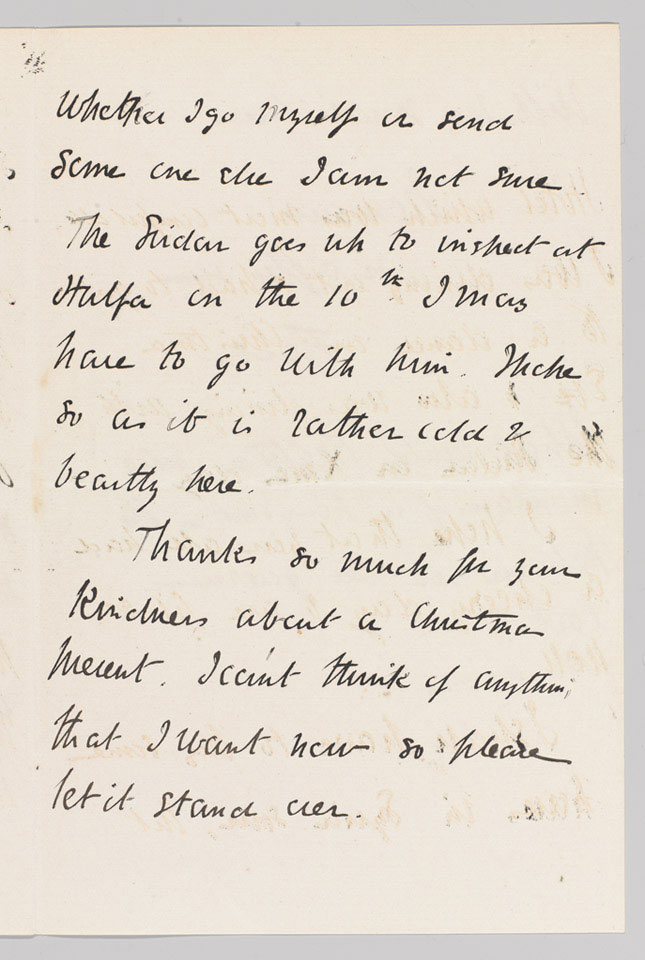 Whether I go myself or send
some one else I am not sure
The Sirdar goes up to inspect at
Halfa on the 10th I may
have to go with him. I hope
so as it is rather cold &
beastly here.
Thanks so much for your
kindness about a Christmas
present. I can't think of anything
that I want now so please
let it stand over.